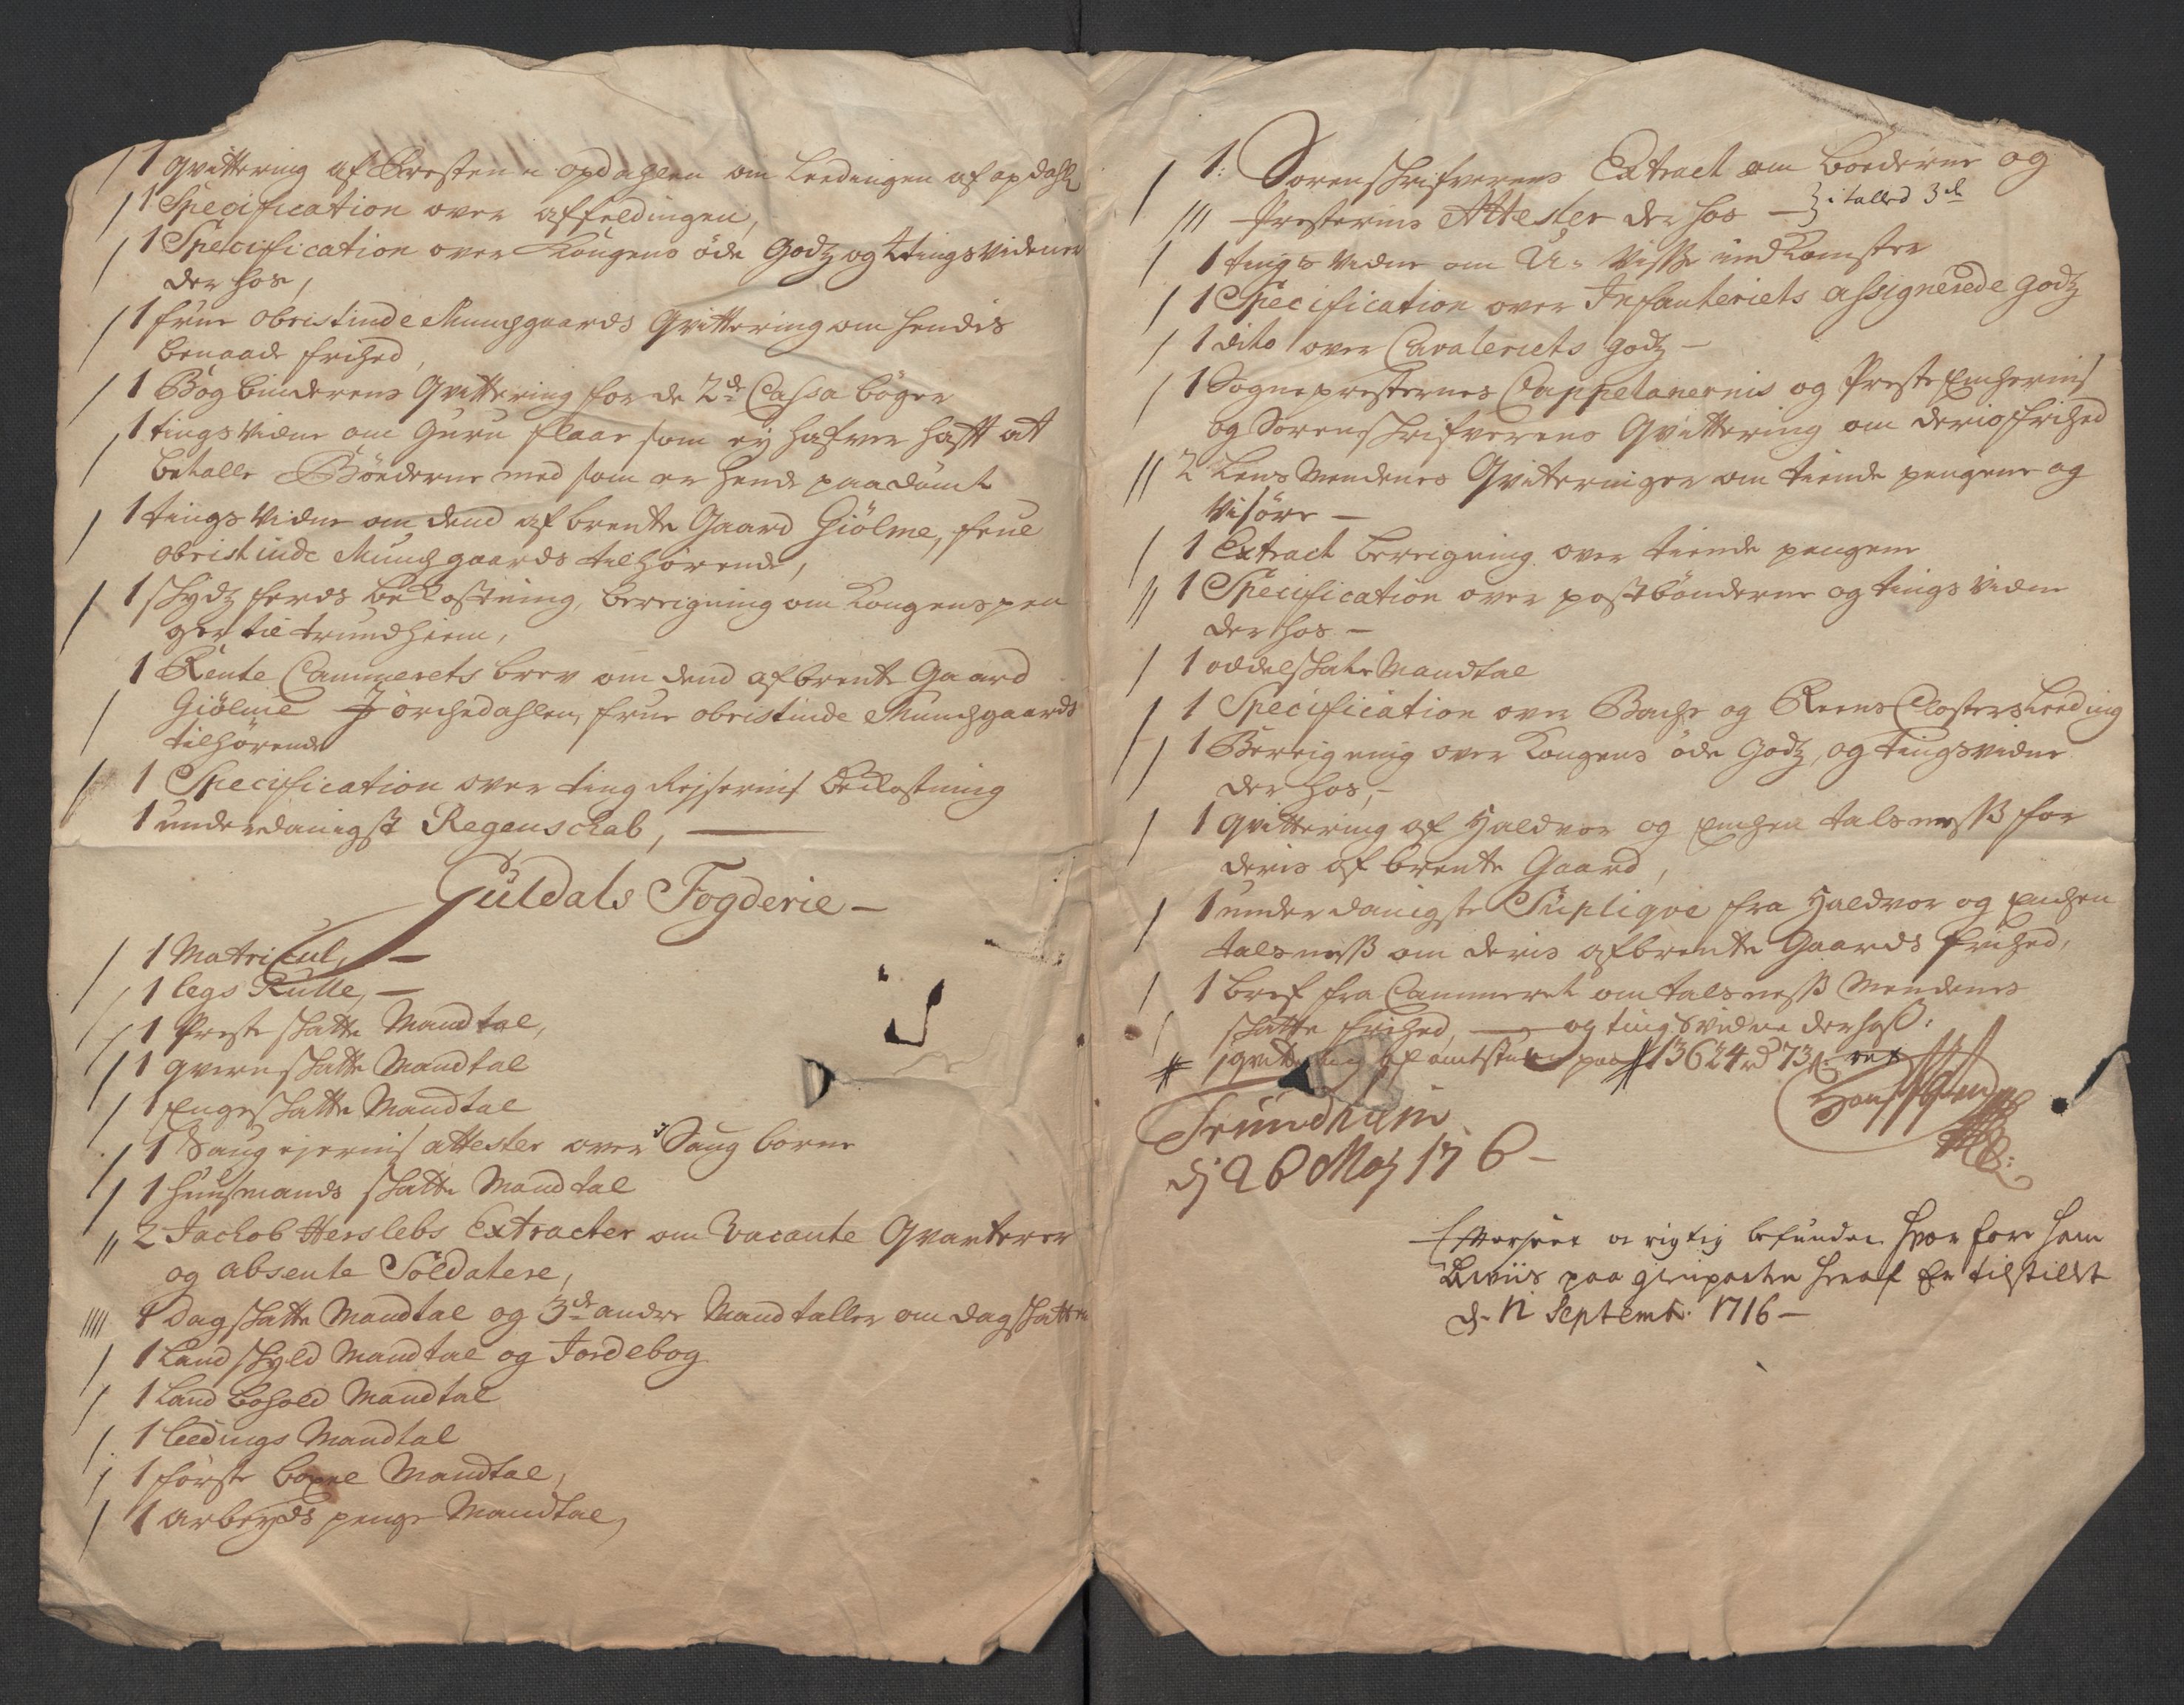 1 Qvittering af Presten i opdahlen om Leedingen af opdahl
1 Specification over affeldingen,
1 Specification over Kongens öde Godz og tingsvidener
der hos,
1 frue obristinde Munchgaards Qvittering om hendis
benaade frihed,
1 Bogbinderens Qvittering for de 2de Cassa böger
1 tings vidne om Guru flaae som ey hafver hafft at
betalle Bönderne med som er hende paadömt
1 tings vidne om dend afbrente Gaard Giölme, frue
obristinde Munchgaards tilhörende,
1 skydz ferds bekostning, beregning om Kongens pen
ger til trundhiem,
1 Rente Cammerets brev om dend afbrente Gaard
Giölme J örchedahlen, frue obristinde Munchgaards
tilhörende
1 Specification over ting Rejsernis bekostning
1 underdanigst Regenschab,
Guldals Fogderie
1 Matricul,
1 legs Rulle,
1 Preste skatte Mandtal,
1 qvern skatte Mandtal
1 Enge skatte Mandtal
1 Saug ejernis attester over Saug borne
1 huusmands skatte Mandtal
2 Jachob Herslebs Extracter om Vacante Qvarterer
og absente Soldatere,
1 Dagskatte Mandtal og 3de andre Mandtaller om dagskatten
1 Landskyld Mandtal og Jordebog
1 Land bohold Mandtal
1 Leedings Mandtal
1 förste böxel Mandtal,
1 arbeyds penge Mandtal,
1: Sorenskrifverens Extract om böederne og
Presternis Attester der hos i talled 3de
1 tings vidne om U= visse indkomster
1 Specification over Infanteriets assignerede Godz
1 dito over Cavaleriets godz
1 Sognepresternes Cappelanernis og Presteenchernis
og Sorenskrifverens Qvittering om deris frihed
2 Lens Mendenes Qvitteringer om tiende pengene og
visöre
1 Extract beregning over tiende pengene
1 Specification over postbönderne og tings vidne
der hos
1 oddelskatte Mandtal
1 Specification over Bache og Reens Closters Leeding
1 Beregning over Kongens öde Godz, og tingsvidne
der hos,
1 qvittering af Haldvor og Enchen talsness for
deris af brente Gaard,
1 underdanigste Supliqve fra Haldvor og Enchen
talsness om deris afbrente Gaards frihed,
1 bref fra Cammeret om talsness Mendenes
skatte frihed, og tings vidne derhos:
1 qvittering af amtstuen paa 13624 rd 73 s:
Trundhiem
dj 26 Maj 1716
Efterseet oc rigtig befunden hvor fore ham
beviis paa genparten heraf er tilstillet
d. 12 Septembr. 1716